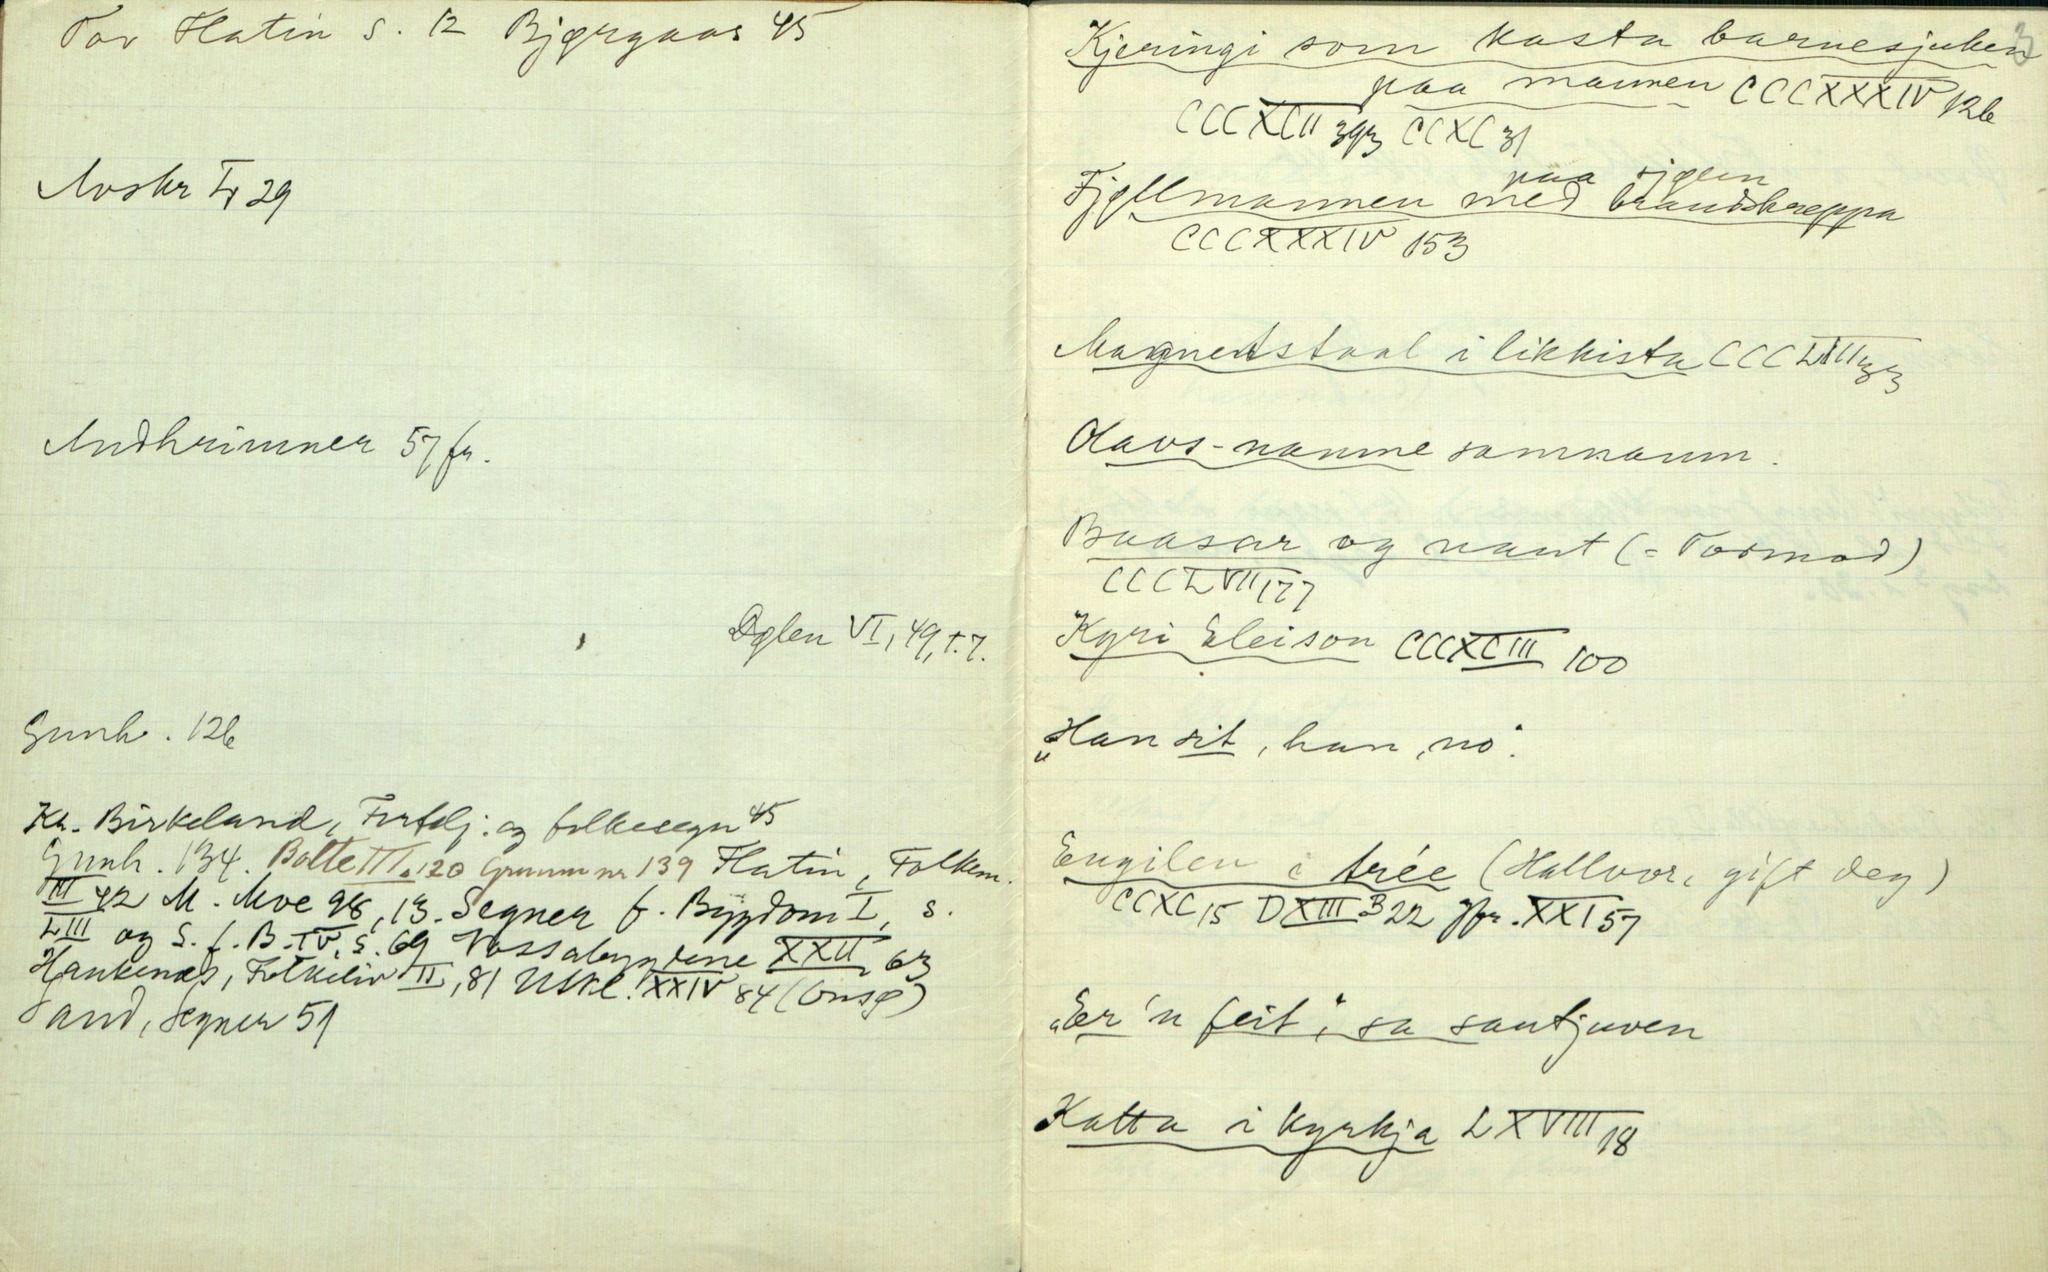 Tov Flatin s. 12 Bjørgaas 45
Avskr IV 29
Andhrimner 57 fr.
Dølen VI, 49, t. 7.
Gunh. 126
Kr. Birkeland, Fortelj. og folkesegn 45
Gunh. 134. Bolte III. 120 Grimm nr 139 Flatin, Folkem.
III 42 M. Moe 98, 13. Segner f. Bygdom I, s.
LIII og S. f. B. IV, s. 69 Vossabygdene XXII, 63
Haukenæs, Folkeliv II, 81 XXIV 84
Sand, Segner 51
3
Kjeringi som kasta barnesjuken
paa mannen CCCXXXIV 126
CCCXCII 393 CCXC 31
paa sjøen
Fjøllmannen med brandskreppa
CCCXXXIV 153
Magnetstaal i likkista CCCLXII 33
Olavs-namne samnamn.
Baasar og naut (= Tormod)
CCCLVII 177
Kyri Eleison CCCXCIII 100
„Han sit, han, no".
Engilen i trée (Hallvor, gift deg)
CCXC 15 DXIII B 22 jfr. XXI 57
„Er 'n feit", sa sautjuven
Katta i kyrkja LXVIII 18